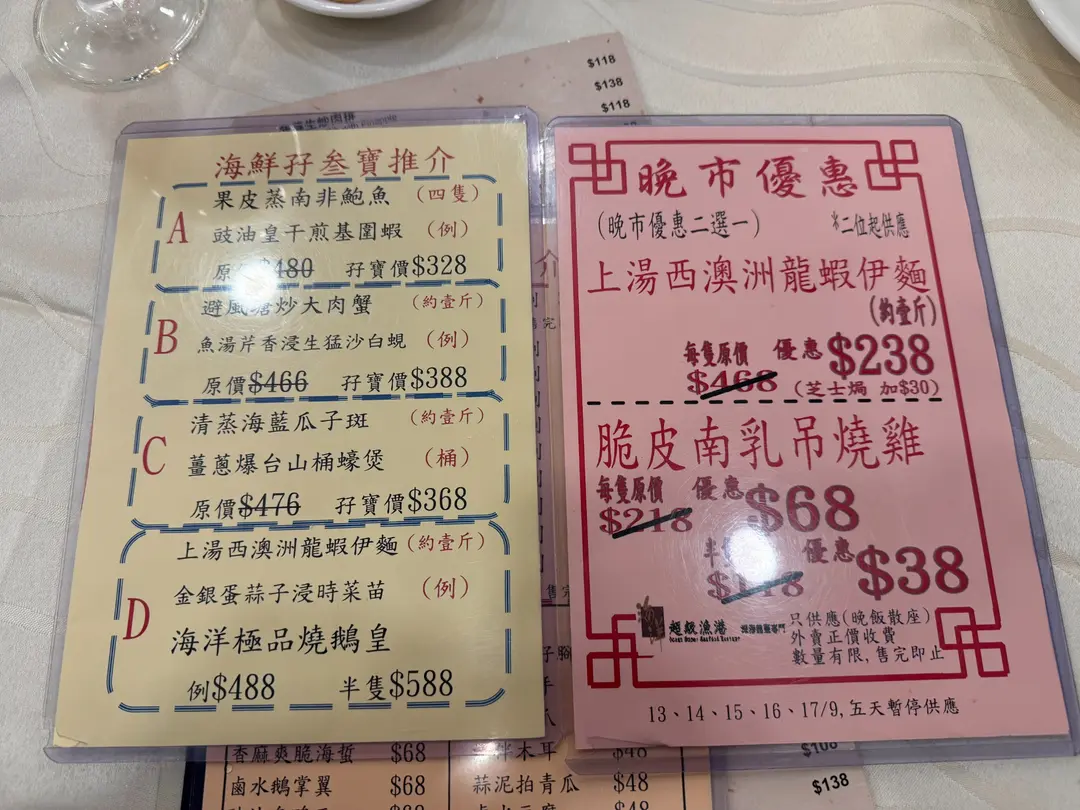 $118
$138
$118
海鮮孖叁寶推介
A
果皮蒸南非鮑魚 (四隻)
豉油皇干煎基圍蝦 (例)
原 $480 孖寶價$328
B
避風塘炒大肉蟹 (約壹斤)
魚湯芹香浸生猛沙白蜆 (例)
原價$466 孖寶價$388
C
清蒸海藍瓜子斑 (約壹斤)
薑蔥爆台山桶蠔煲 (桶)
原價$476 孖寶價$368
D
上湯西澳洲龍蝦伊麵 (約壹斤)
金銀蛋蒜子浸時菜苗 (例)
海洋極品燒鵝皇
例$488 半隻$588
晚市優惠
(晚市優惠二選一) *二位起供應
上湯西澳洲龍蝦伊麵
(約壹斤)
每隻原價 優惠$238
$468 (芝士焗 加$30)
脆皮南乳吊燒雞
每隻原價 優惠$68
$218
半 優惠$38
超級漁港
只供應(晚飯散座)
外賣正價收費
數量有限,售完即止
13、14、15、16、17/9,五天暫停供應
介
售完
香麻爽脆海蜇 $68
拌木耳 $48
鹵水鵝掌翼 $68
蒜泥拍青瓜 $48
$138